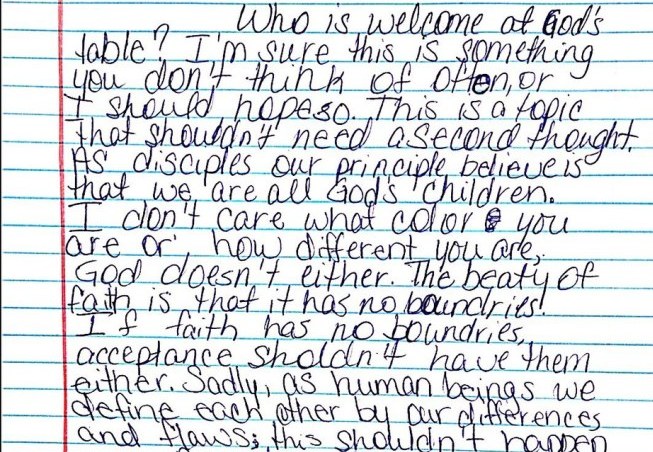 Who is welcome at God's
table? I'm sure this is something
you don't think of often, or
I should hope so. This is a topic
that shouldn't need a second thought.
As disciples our principle believe is
that we are all God's children.
I don't care what color you
are or how different you are,
God doesn't either. The beaty of
faith is that it has no boundries!
If faith has no boundries,
acceptance sholdn't have them
either. Sadly, as human beings we
define each other by our differences
and flaws; this shouldn't happen